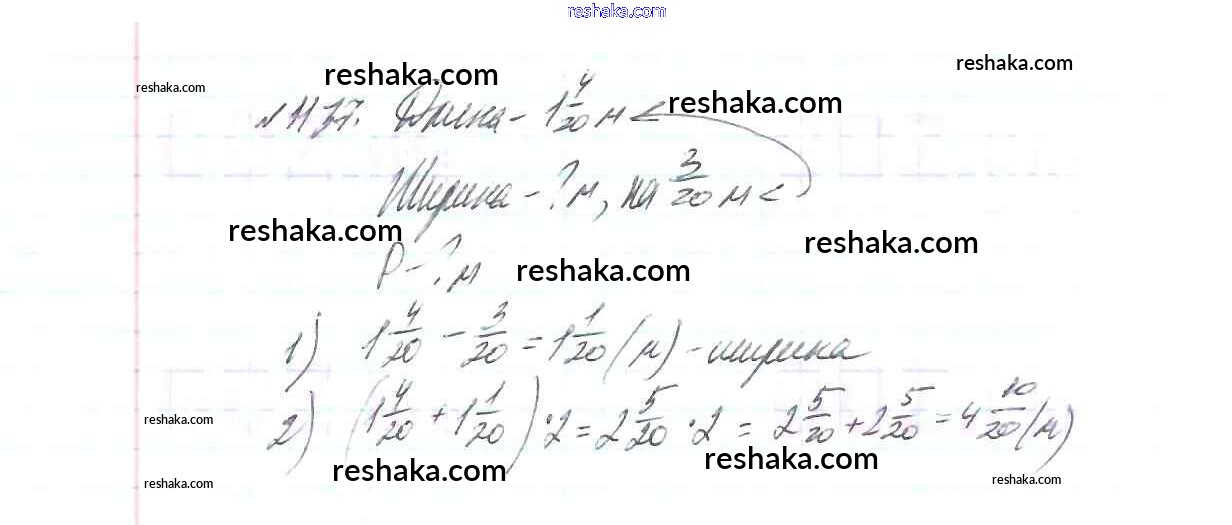 reshaka.com
reshaka.com reshaka.com
reshaka.com reshaka.com
№1137. Длина - 1 4/20 м <
Ширина - ? м, на 3/20 м <
reshaka.com reshaka.com
P - ? м reshaka.com
1) 1 4/20 - 3/20 = 1 1/20 (м) - ширина
2) (1 4/20 + 1 1/20) · 2 = 2 5/20 · 2 = 2 5/20 + 2 5/20 = 4 10/20 (м)
reshaka.com
reshaka.com reshaka.com
reshaka.com reshaka.com